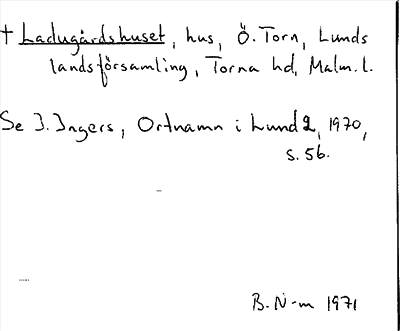 † Ladugårdshuset, hus, Ö. Torn, Lunds
landsförsamling, Torna hd, Malm. l.
Se I. Ingers, Ortnamn i Lund 2, 1970,
s. 56.
B. N-m 1971